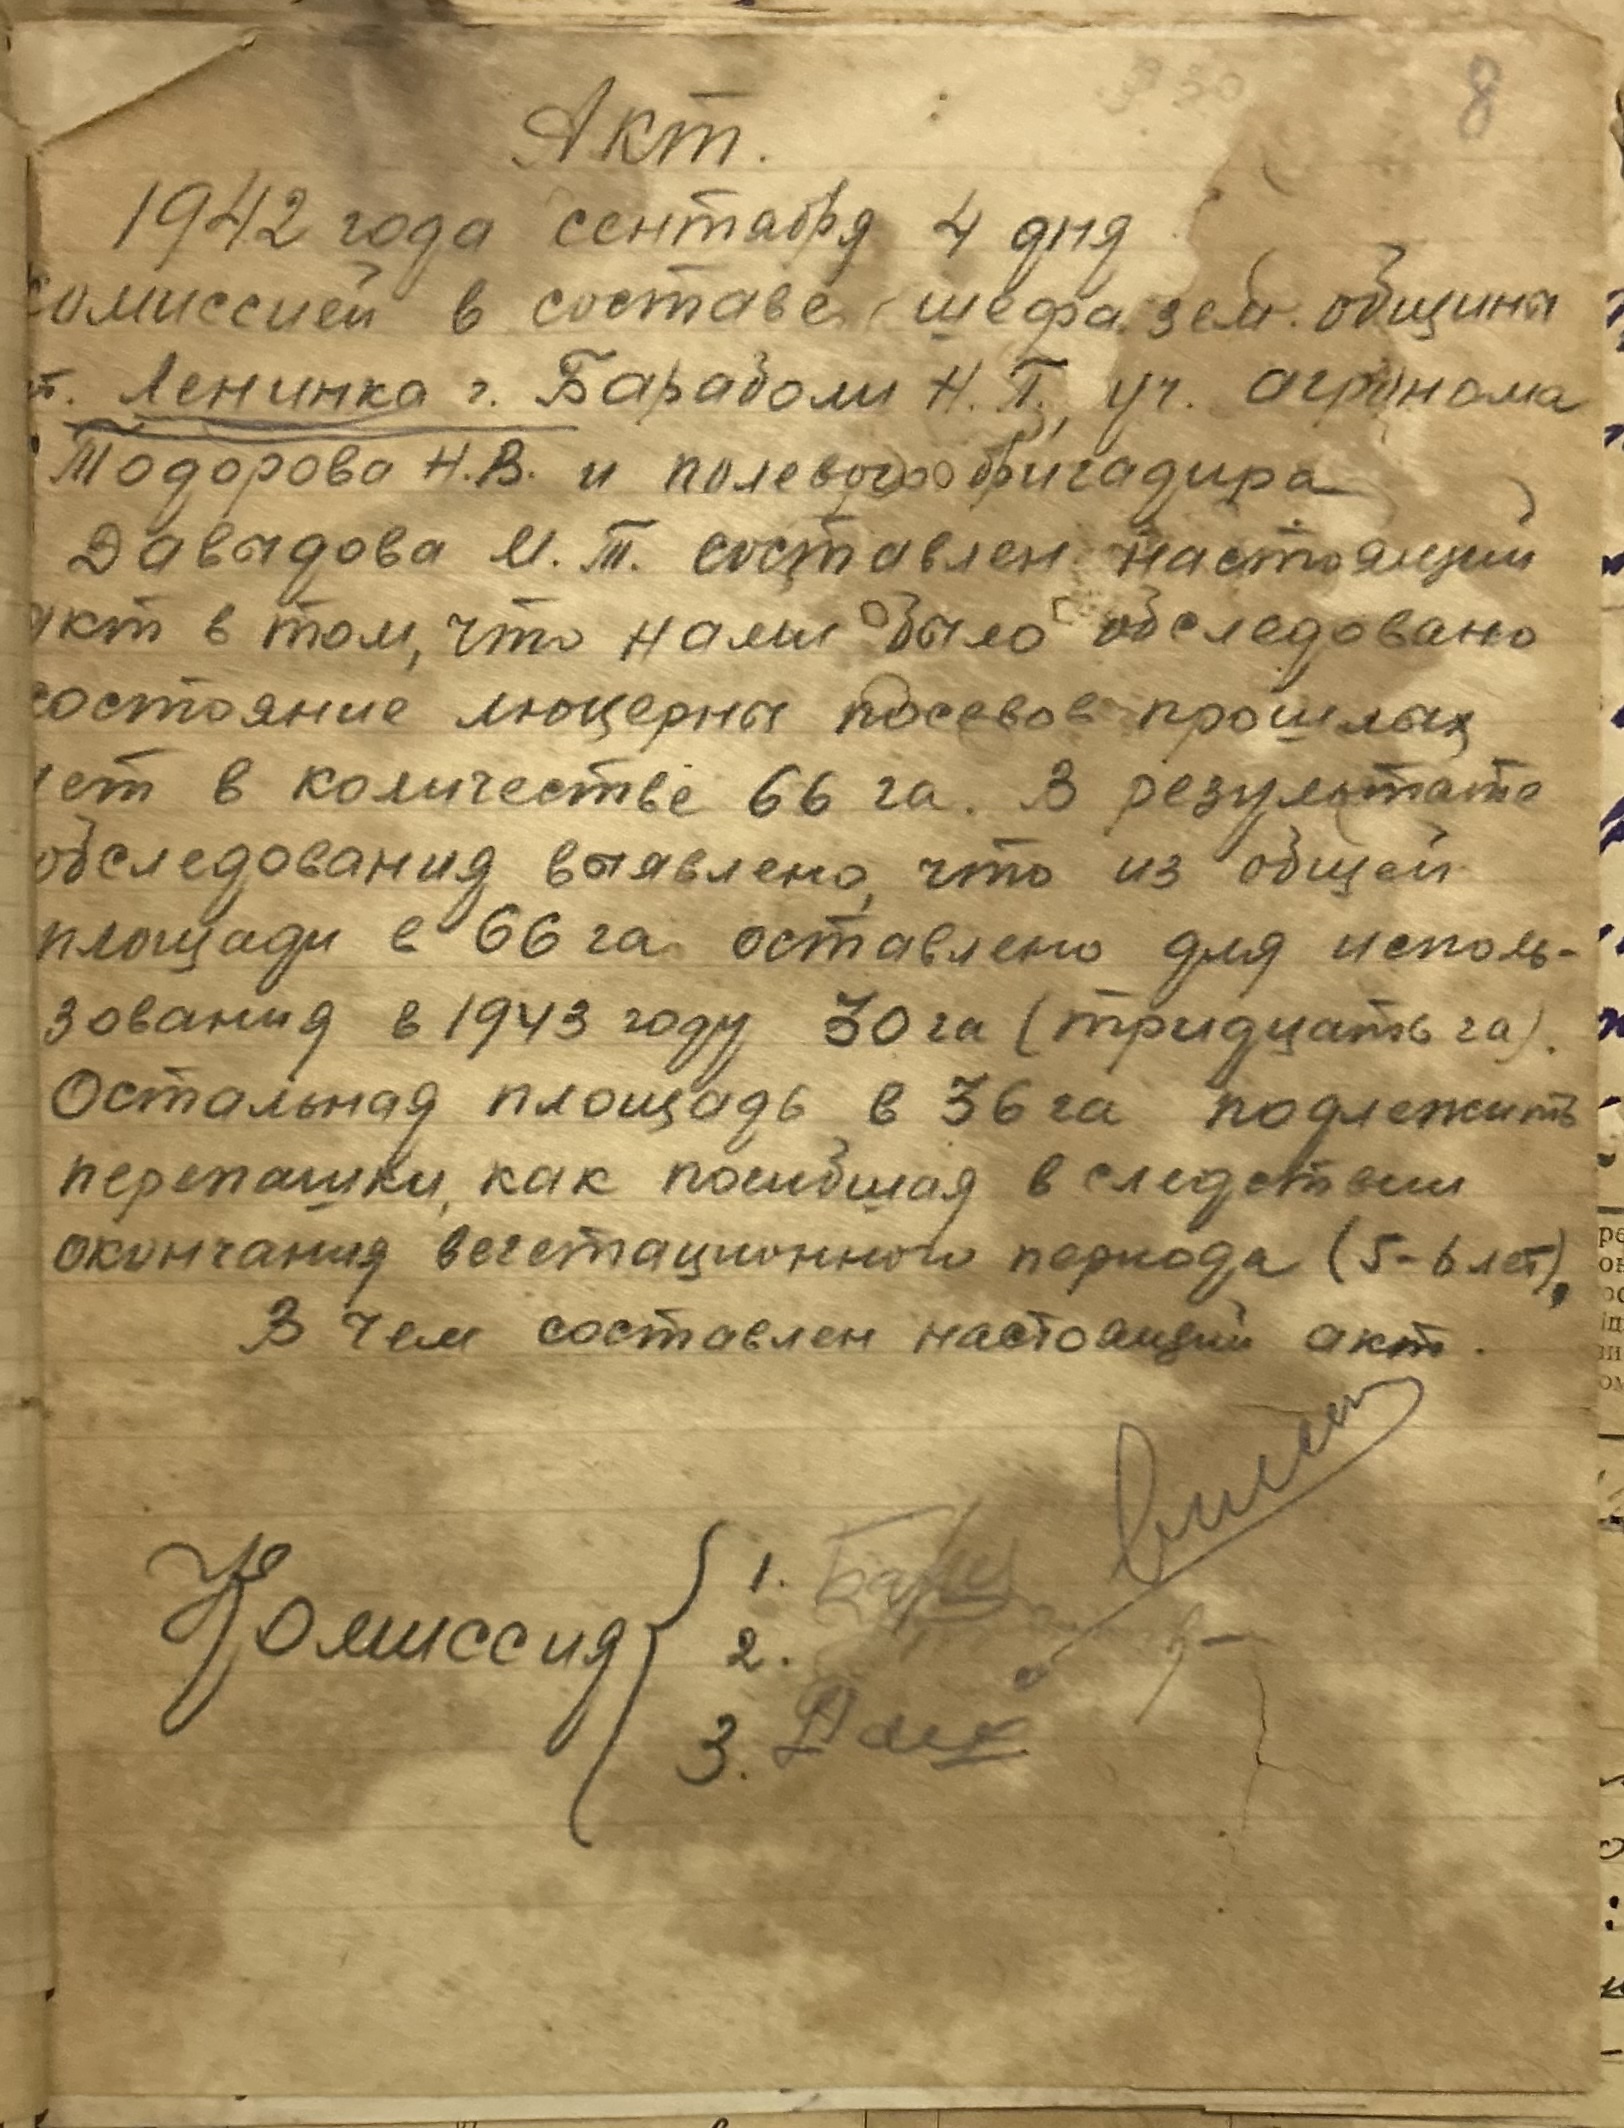 8
Акт.
1942 года сентября 4 дня
комиссией в составе шефа зем. общины
Ленинка г. Бараболи Н.П., уч. агронома
Тодорова Н.В. и полевого бригадира
Давыдова М.Т. составлен настоящий
акт в том, что нами было обследовано
состояние люцерны посевов прошлых
лет в количестве 66 га. В результате
обследования выявлено, что из общей
площади в 66 га оставлено для исполь-
зования в 1943 году 30 га (тридцать га).
Остальная площадь в 36 га подлежить
перепашки, как погибшая в следствии
окончания вегетационного периода (5-6 лет),
В чем составлен настоящий акт.
Комиссия
1.
2.
3.